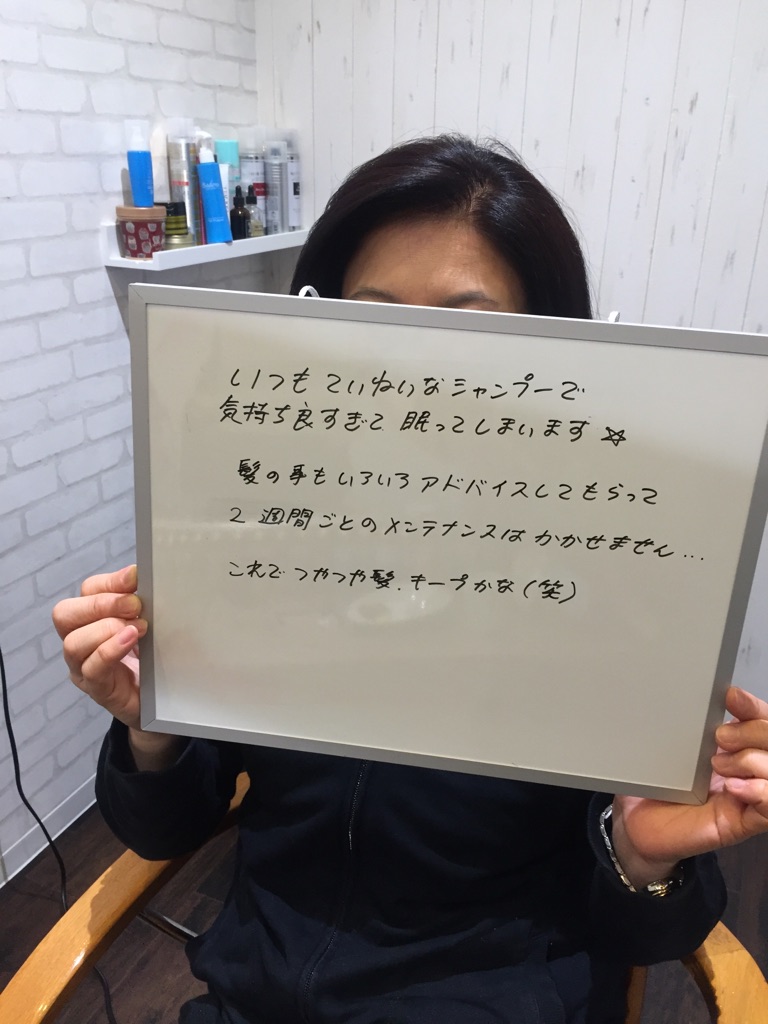 いつもていねいなシャンプーで
気持ち良すぎて眠ってしまいます☆
髪の事もいろいろアドバイスしてもらって
2週間ごとのメンテナンスはかかせません...
これでつやつや髪.キープかな(笑)